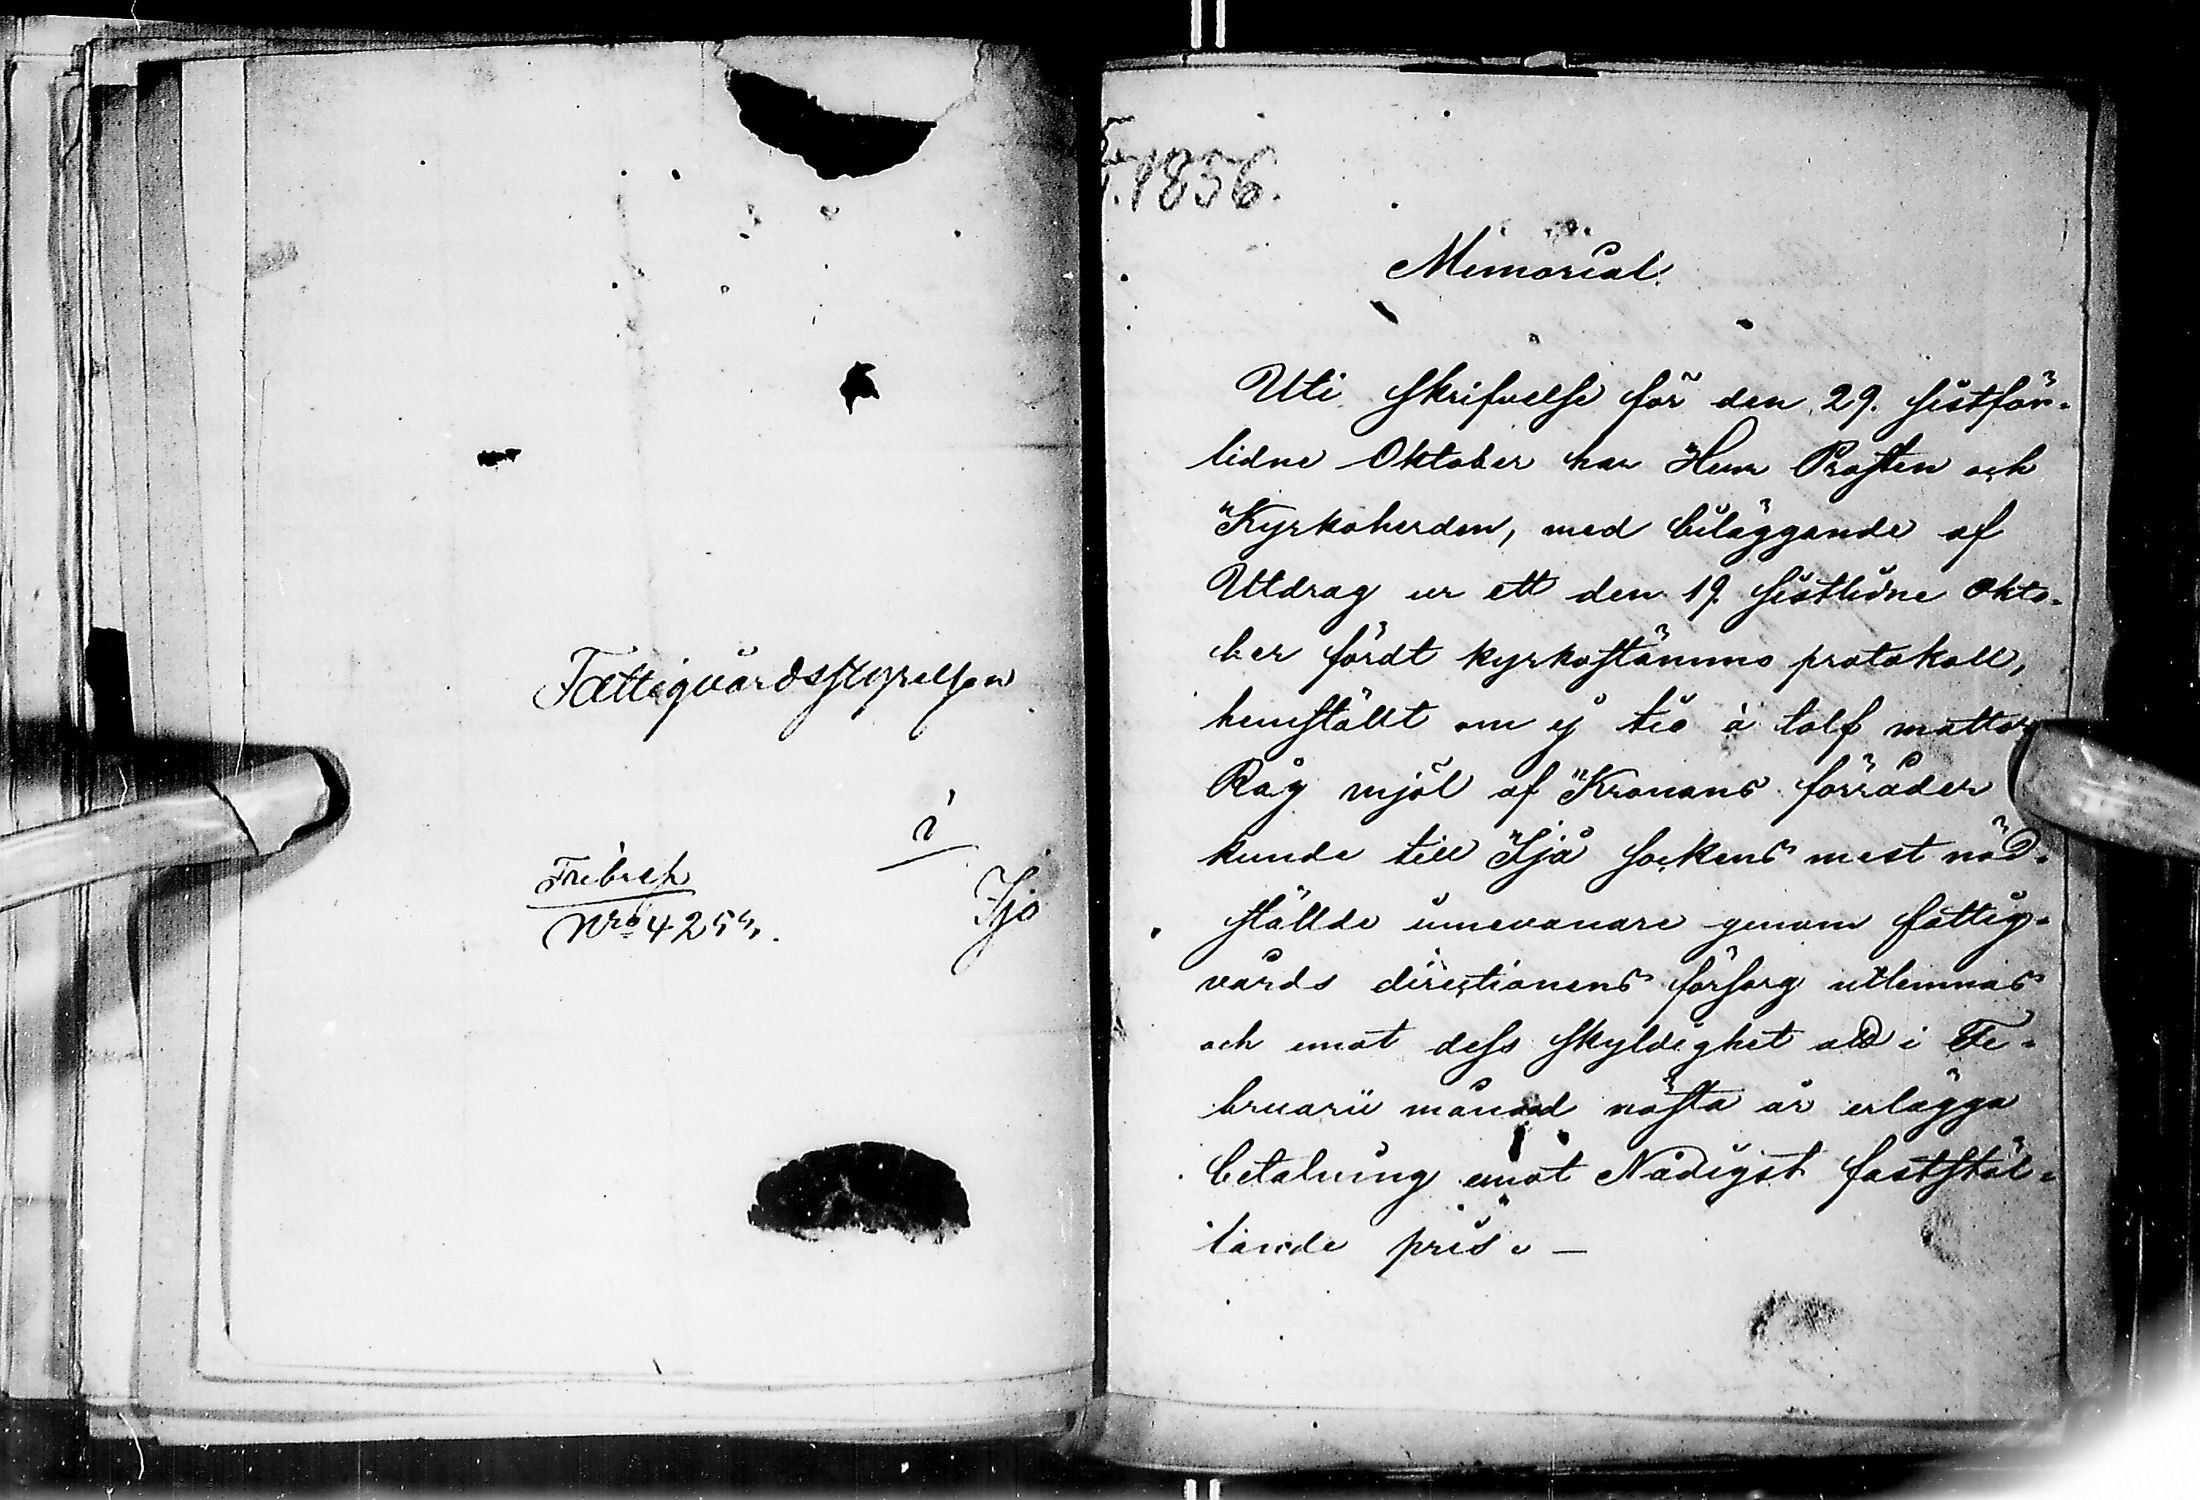 Fattigvårdsstyrelsen
i
Ijo
Fribref
Nro 4255.
1856.
Memorial.
Uti skrifvelse för den 29. sistför-
lidne Oktober har Herr Prosten och
Kyrkoherden, med biläggande af
Utdrag ur ett den 19 sistlidne Okto-
ber fördt kyrkostämmo protokoll,
hemställt om ej tio à tolf mattor
Råg mjöl af Kronans förråder
kunde till Ijå sockens mest nöd-
ställde innevånare genom fattig-
vårds directionens försorg utlemnas
och emot dess skyldighet att i Fe-
bruarii månad nästa år erlägga
betalning emot Nådigst fastställ-
lande pris. —